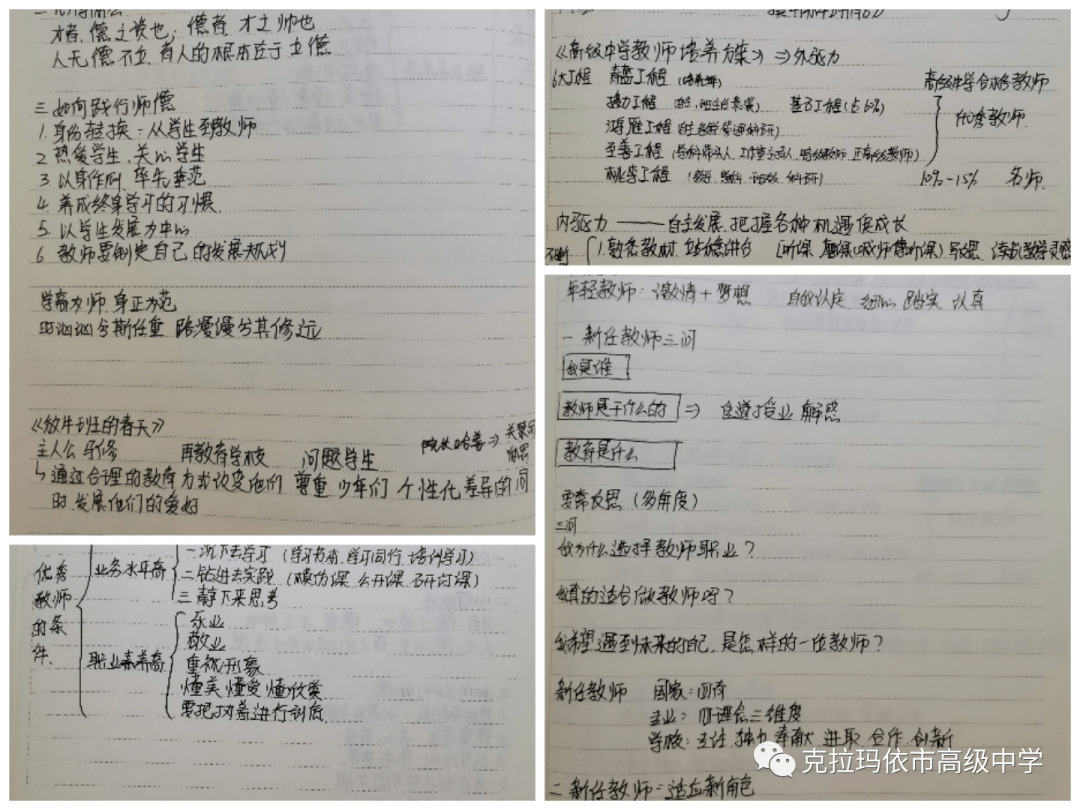 才者,德之资也;德者,才之帅也
人无德不立,育人的根本在于立德
三 如何践行师德
1. 身份转换:从学生到教师
2 热爱学生、关心学生
3. 以身作则,率先垂范
4. 养成终身学习的习惯
5. 以学生发展为中心
6 教师要制定自己的发展规划
学高为师,身正为范
兮斯任重 路漫漫兮其修远
《放牛班的春天》
主人公 马修 再教育学校 问题学生
通过合理的教育方式改变他们 尊重少年们个性化差异的同
时,发展他们的爱好
优秀教师的条件
业务水平高
一 沉下去学习 (学习书本,学习同行,培训学习)
二 钻进去实践 (模仿课 公开课 研讨课)
三 静下来思考
职业素养高
乐业
敬业
重视形象
懂美 懂爱 懂欣赏
要把执着进行到底
《高级中学教师培养方案》⇒外驱力
6大工程 青蓝工程
接力工程 基石工程(占60%)
鸿雁工程
至善工程
桃李工程
高级中学合格教师
优秀教师
10%-15% 名师
内驱力 —— 自主发展,把握各种机遇促成长
1. 熟悉教材,站稳讲台
年轻教师:激情+梦想 自我认定 细心 踏实 认真
一 新任教师三问
我是谁
教师是干什么的 ⇒ 传道 授业 解惑
教育是什么
要常反思(多角度)
三问
我为什么选择教师职业?
我真的适合做教师吗?
我希望遇到未来的自己,是怎样的一位教师?
新任教师 国家:四有
专业:四理念三维度
学校:专注 独立 奉献 进取 合作 创新
二 新任教师:适应新角色
克拉玛依市高级中学